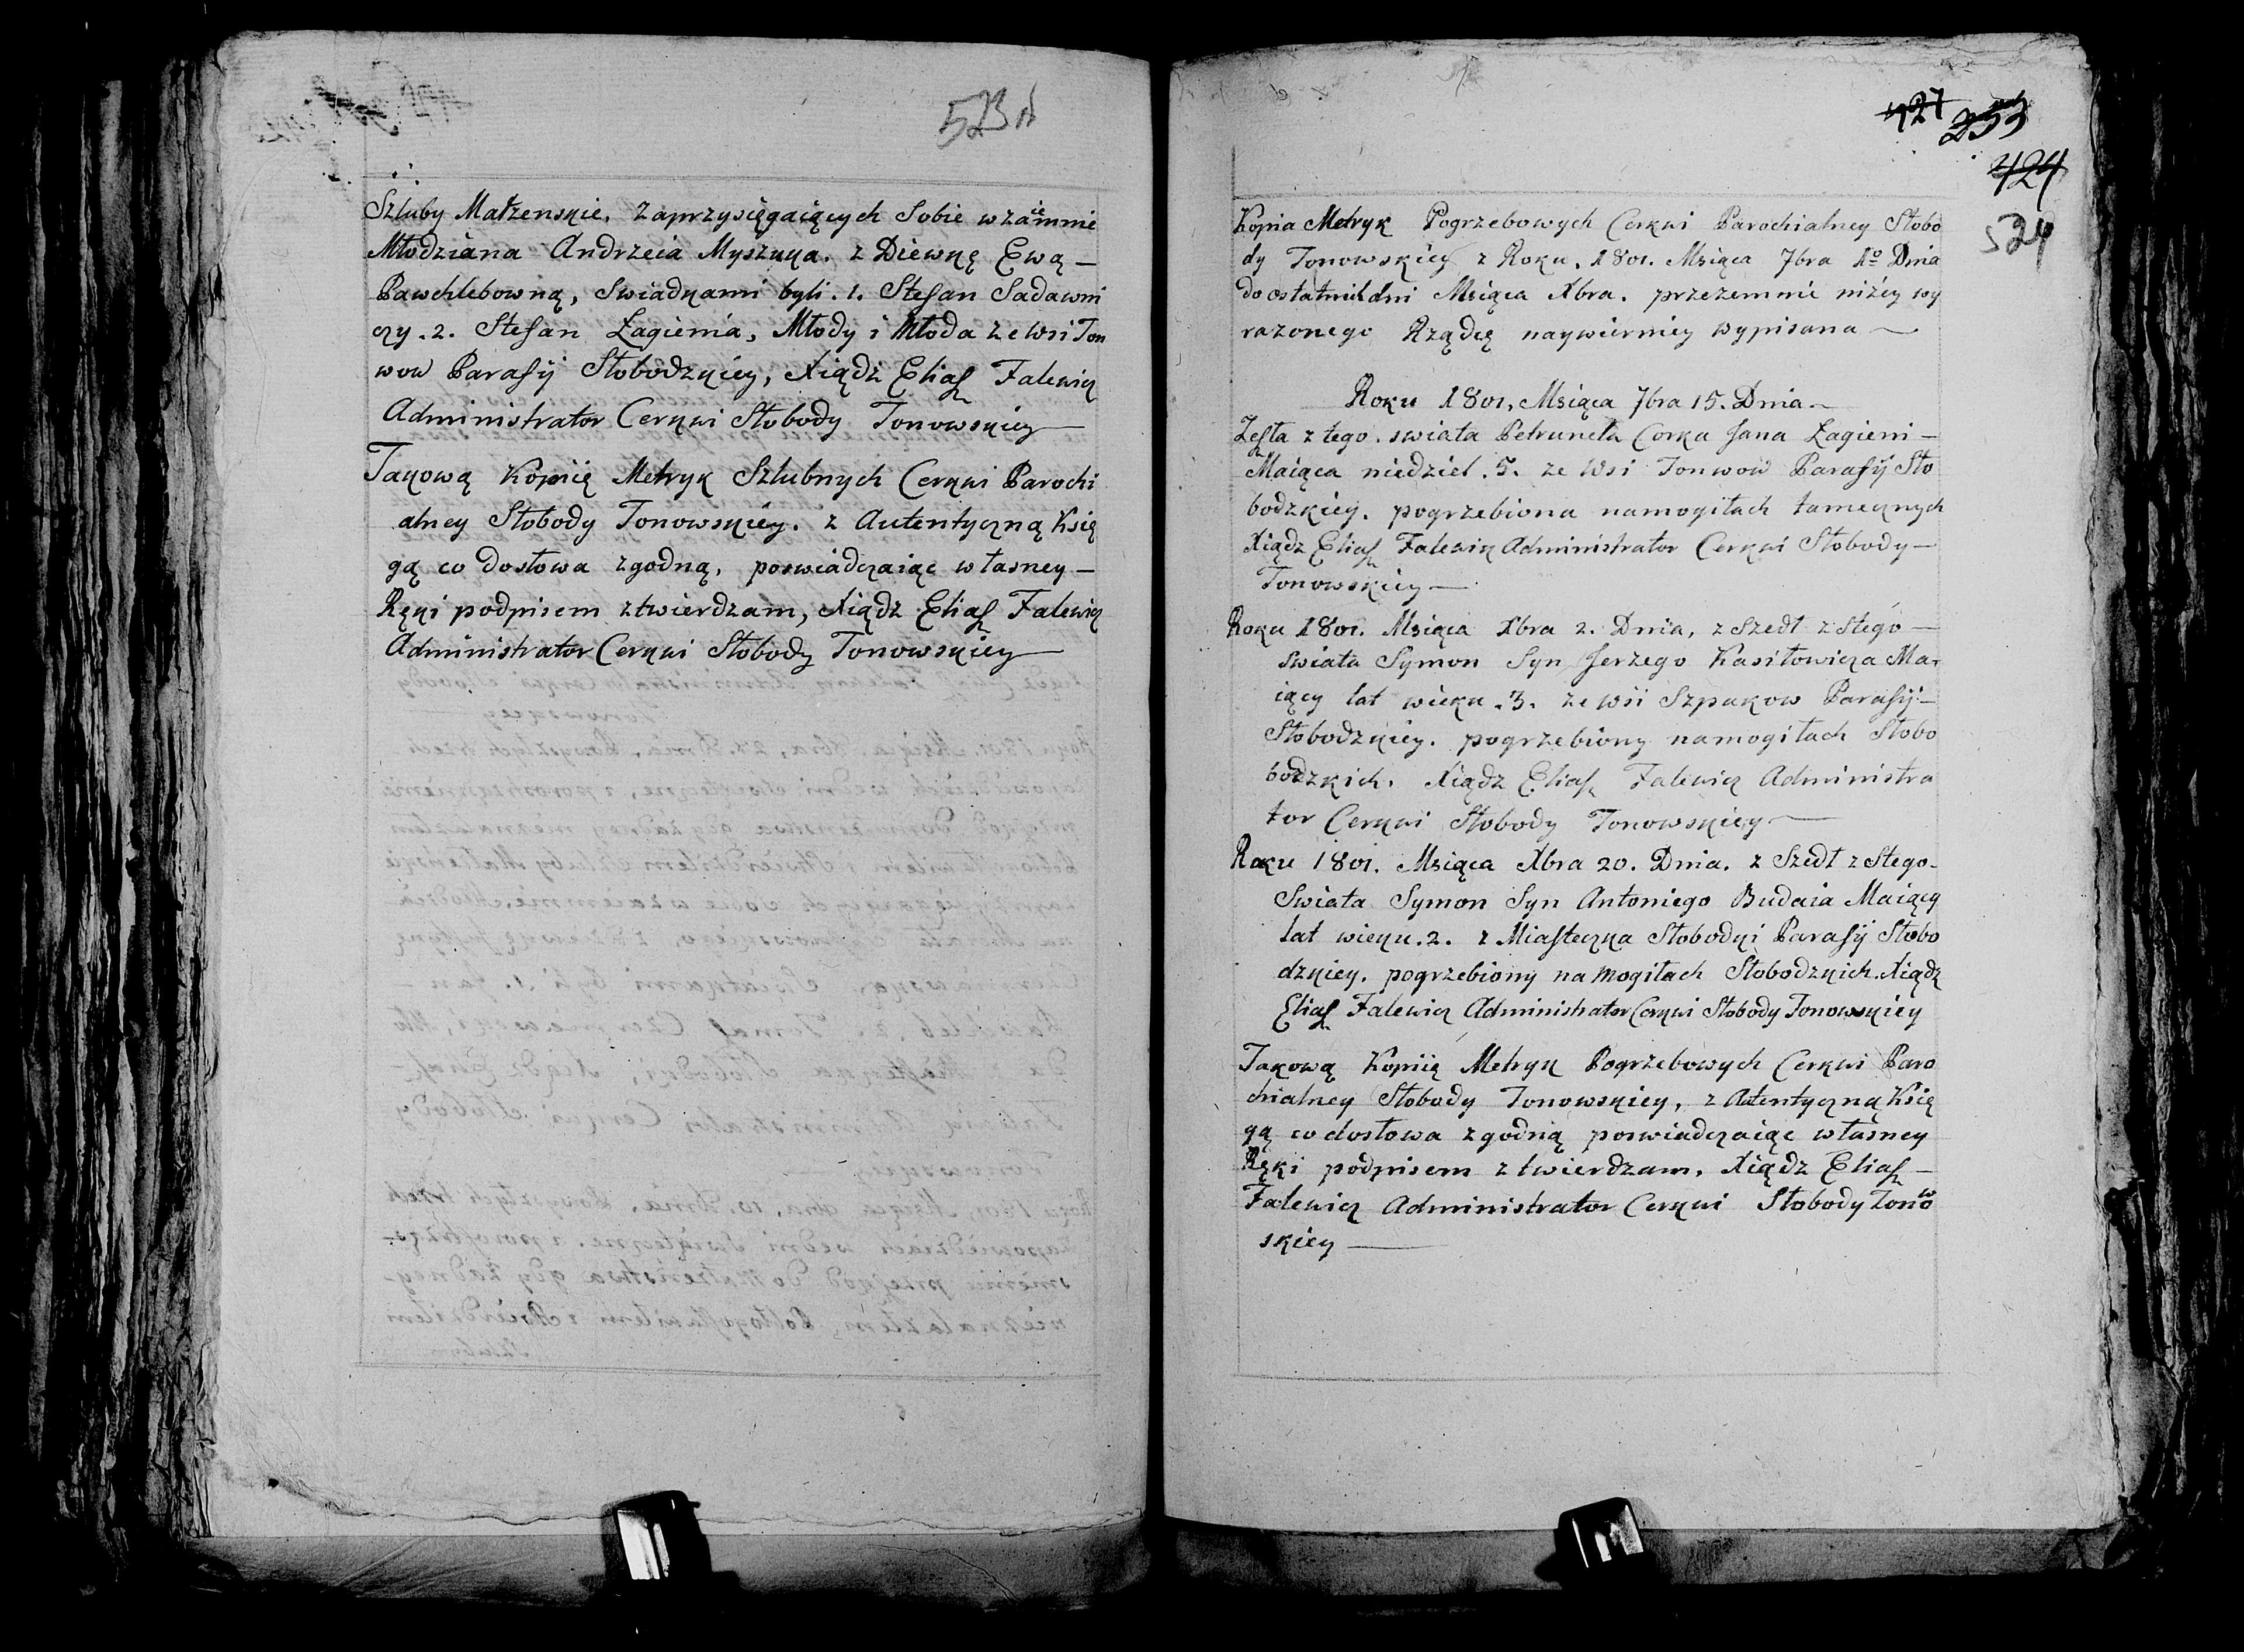 523 v
Szluby Małzenskie. Zaprzysięgaiących Sobie wzaiemnie
Młodziana Andrzeia Myszuka. z Diewkę Ewą —
Pawchlebowną, Swiadkami byli. 1. Stefan Sadawni
czy. 2. Stefan Łagienia, Młody i Młoda ze wsi Ton
wow Parafij Słobodzkiey, Xiądz Eliasz Falewicz
Administrator Cerkwi Słobody Tonowskiey
Takową Kopiię Metryk Szlubnych Cerkwi Parochi
alney Słobody Tonowskiey. z Autentyczną Księ
gą co dosłowa zgodną, poswiadczaiąc własney —
Ręki podpisem ztwierdzam, Xiądz Eliasz Falewicz
Administrator Cerkwi Słobody Tonowskiey
427 253
424
524
Kopia Metryk Pogrzebowych Cerkwi Parochialney Słobo
dy Tonowskiey z Roku. 1801. Msiąca 7bra 1o Dnia
do ostatnich dni Msiąca Xbra. przezemnie niżey wy
razonego Rządcę naywierniey wypisana —
Roku 1801, Msiąca 7bra 15. Dnia —
Zeszła z tego. swiata Petrunela Corka Jana Łagieni —
Maiąca niedziel. 5. ze Wsi Tonwow Parafij Sło
bodzkiey. pogrzebiona namogiłach tamecznych
Xiądz Eliasz Falewicz Administrator Cerkwi Słobody —
Tonowskiey —
Roku 1801. Msiąca Xbra 2. Dnia, z Szedł z Stego —
swiata Symon Syn Jerzego Kasiłowicza Ma-
iący lat wieku. 3. ze wsi Szpakow Parafij —
Słobodzkiey. pogrzebiony namogiłach Słobo
bodzkich. Xiądz Eliasz Falewicz Administra
tor Cerkwi Słobody Tonowskiey —
Roku 1801. Msiąca Xbra 20. Dnia. z Szedł z Stego-
Swiata Symon Syn Antoniego Budaia Maiący
lat wieku. 2. z Miasteczka Słobodki Parafij Słobo
dzkiey. pogrzebiony na Mogiłach Słobodzkich. Xiądz
Eliasz Falewicz Administrator Cerkwi Słobody Tonowskiey
Takową Kopiię Metryk Pogrzebowych Cerkwi Paro
chialney Słobody Tonowskiey, z Autentyczną Księ
gą co dosłowa zgodną poswiadczaiąc własney
Ręki podpisem ztwierdzam, Xiądz Eliasz —
Falewicz Administrator Cerkwi Słobody Tonow
skiey —